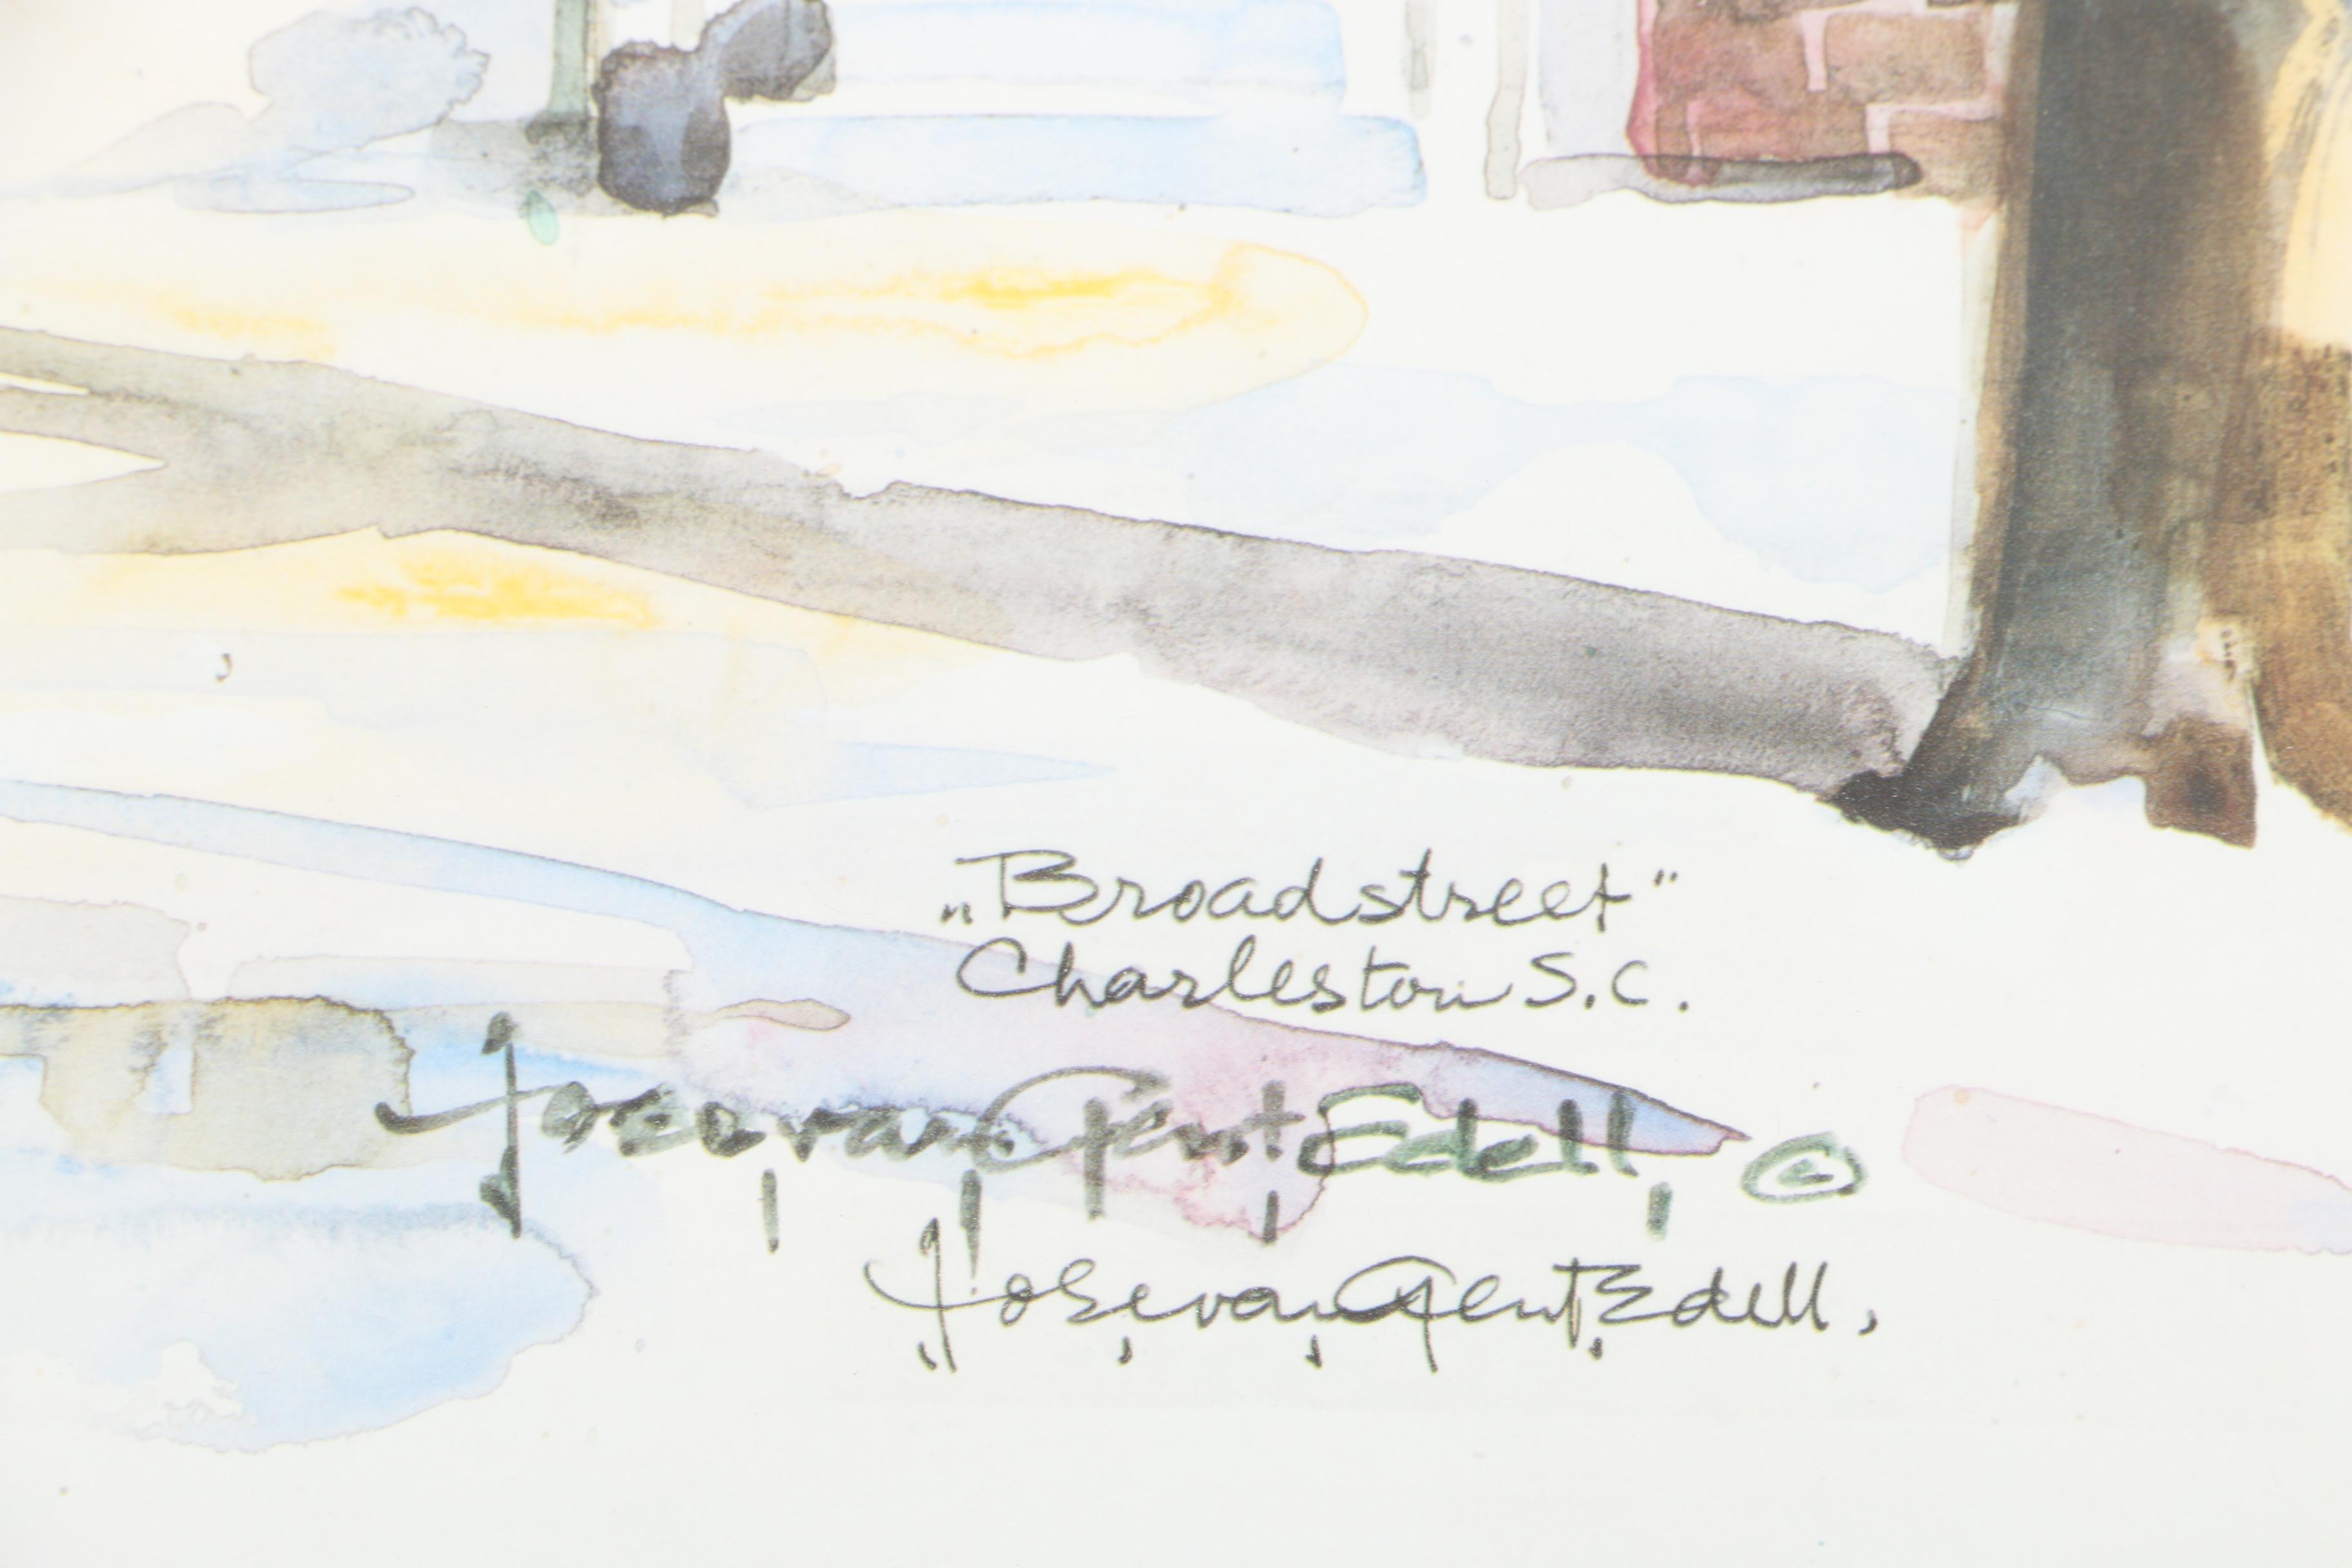 „Broadstreet"
Charleston S.C.
Jose van Gent Edell ©
Jose van Gent Edell.